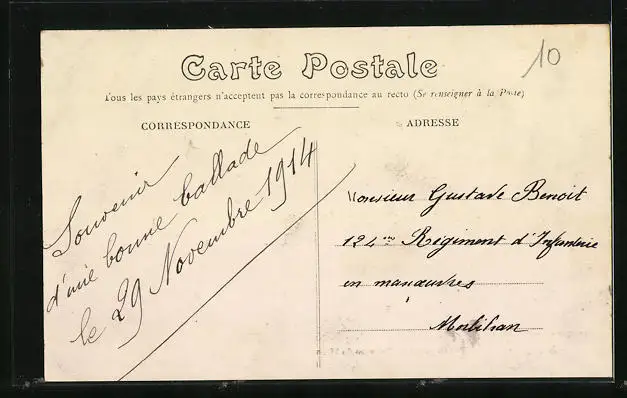 10
Carte Postale
Tous les pays étrangers n'acceptent pas la correspondance au recto (Se renseigner à la Poste)
CORRESPONDANCE
ADRESSE
Souvenir
d'une bonne ballade
le 29 Novembre 1914
Monsieur Gustave Benoit
124me Régiment d'Infanterie
en manœuvres
Morbihan